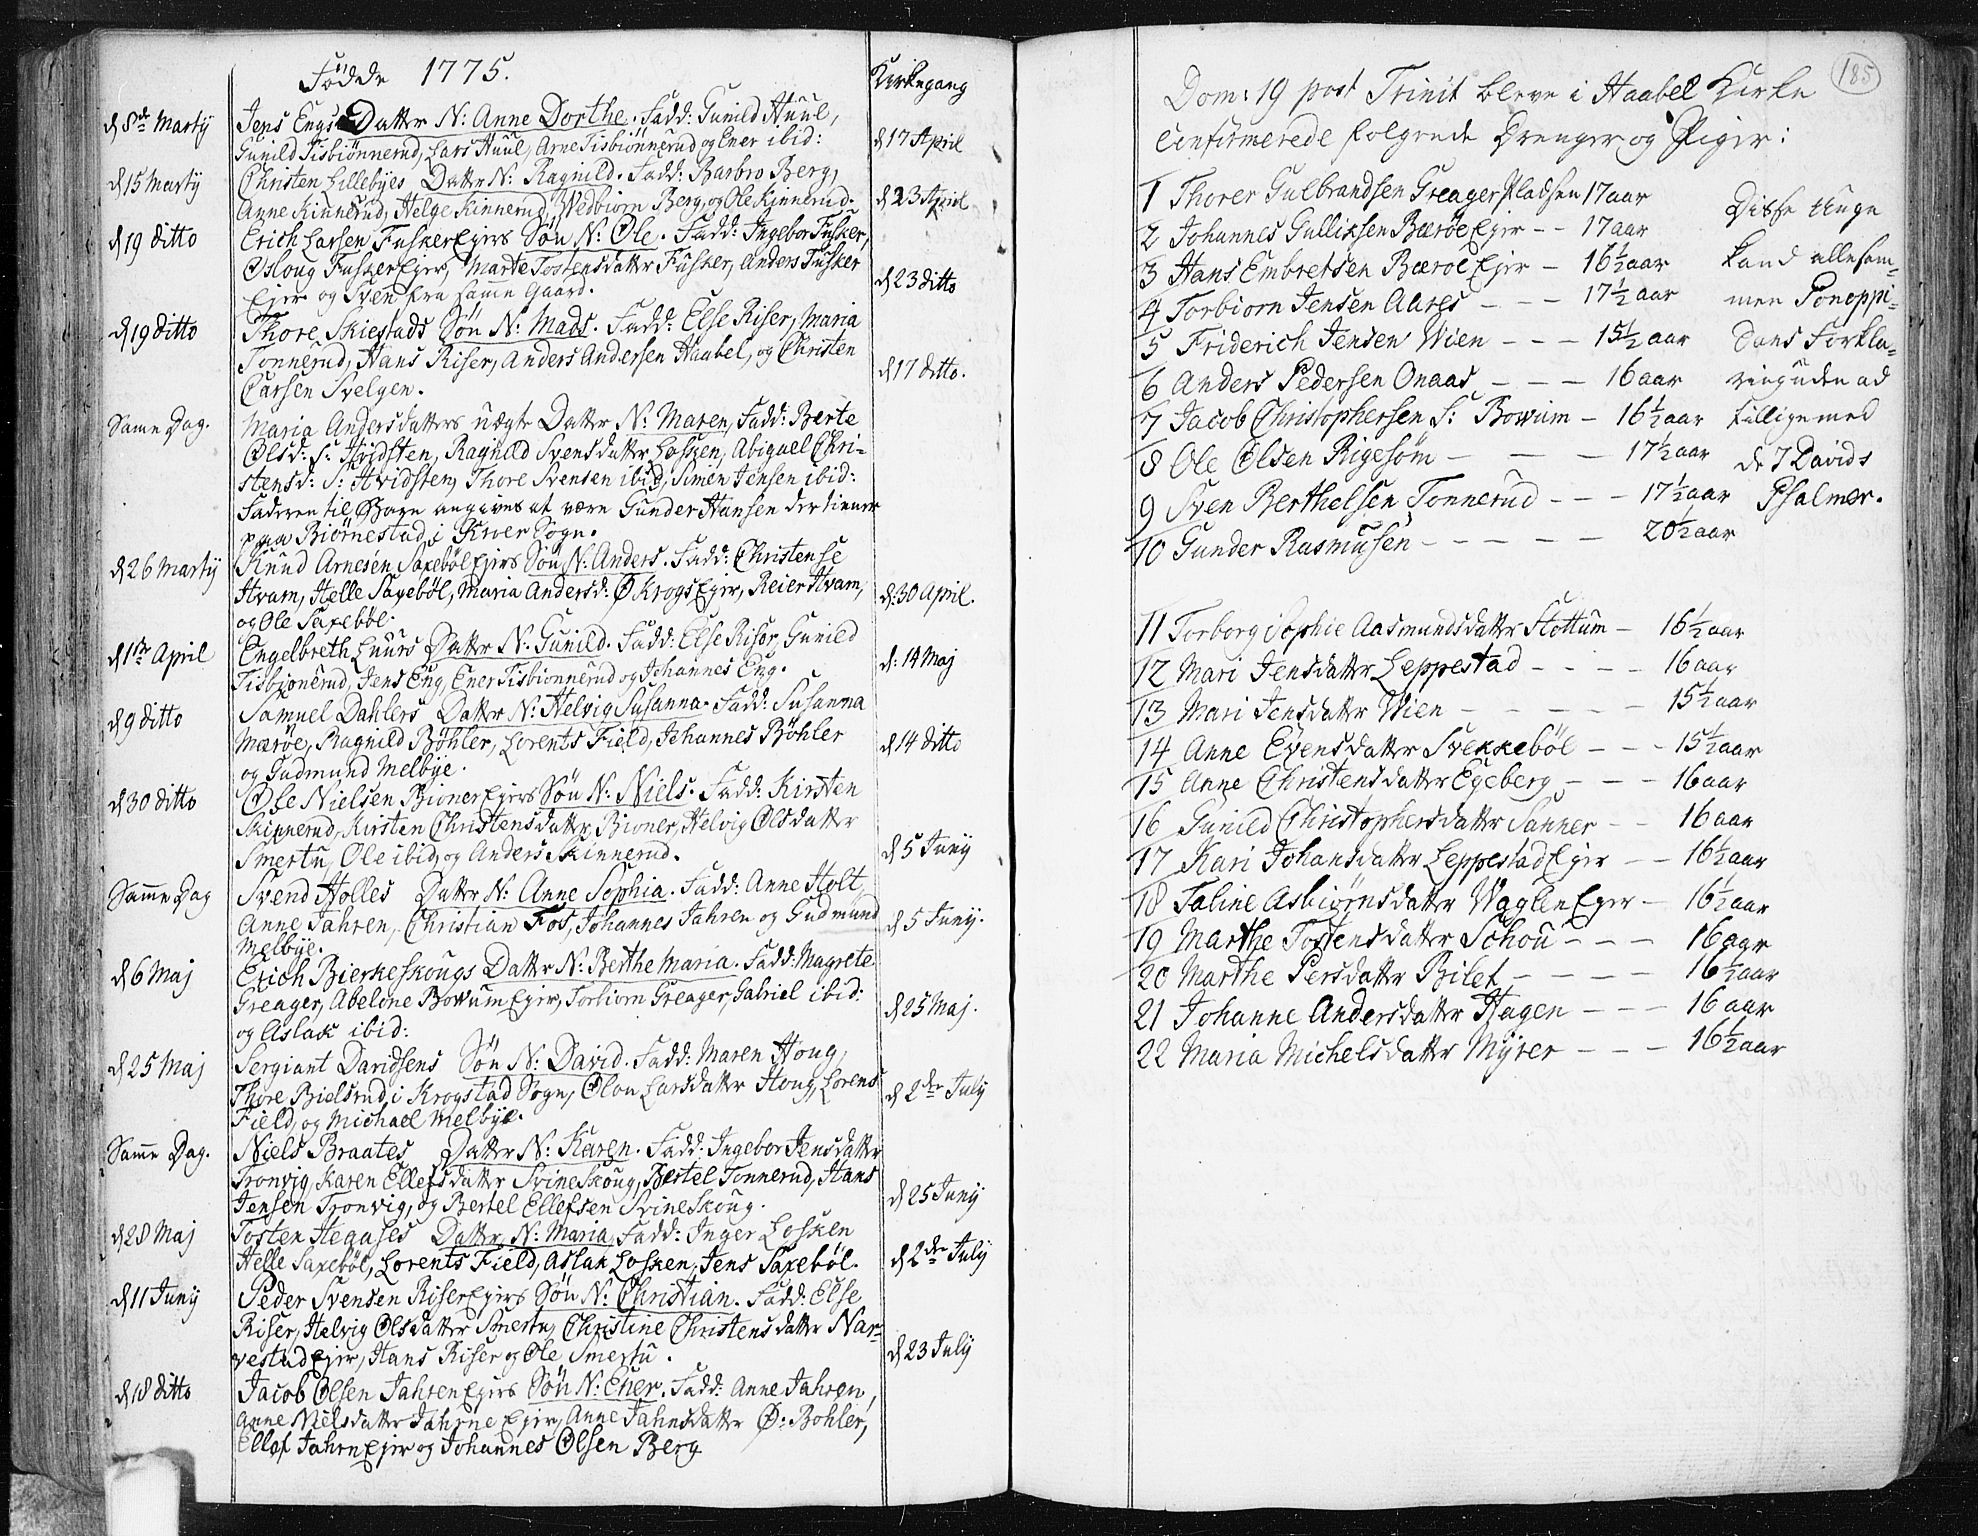 Fødde 1775.
Kirkegang
d 8de Martÿ
Jens Engs Datter N: Anne Dorthe. Fadd: Gunild Huul,
Gunild Tisbiønnerud, Lars Huul, Arne Tisbiønnerud og Ener ibid:
d 17 April
d 15 Martÿ
Christen Lillebyes Datter N: Ragnild. Fadd: Barbro Berg,
Anne Kinnerud, Helge Kinnerud, Wedbiorn Berg, og Ole Kinnerud.
d 23 April
d 19 ditto
Erich Larsen Fusker Ejers Søn N: Ole. Fadd: Ingebor Fusker,
Osloug Fusker Ejer, Marte Tostensdatter Fusker, Anders Fusker
Ejer og Sven fra samme Gaard.
d 23 ditto
d 19 ditto
Thore Skiestads Søn N: Mads. Fadd: Else Riser, Maria
Tonnerud, Hans Riser, Anders Andersen Haabel, og Christen
Carsen Svelgen.
d 17 ditto.
Same Dag.
Maria Andersdatters uægte Datter N: Maren, Fadd: Berte
Olsd: S: Hvidsten, Ragnild Svensdatter Losken, Abigael Chri-
stensd: S: Hvidsten, Thore Svensen ibid, Simen Jensen ibid:
Faderen til Barn angives at være Gunder Hansen der tiener
paa Biørnestad i Kroer Sogn.
d 26 Martÿ
Knud Arnesen Saxebøl Ejers Søn N: Anders. Fadd: Christense
Hvam, Helle Saxebøl, Maria Andersd: Ø Krogs Ejer, Reier Hvam,
og Ole Saxebøl.
d: 30 April.
d 1ste April
Engelbreth Luurs Datter N: Gunild. Fadd: Else Riser, Gunild
Tisbionerud, Jens Eng, Ener Tisbionnerud og Johannes Eng.
d: 14 Maj
d 9 ditto
Samuel Dahlers Datter N: Helvig Susanna. Fadd: Susanna
Mærøe, Ragnild Bøhler, Lorents Field, Johannes Bøhler
og Gudmund Melbye.
d 14 ditto
d 30 ditto
Ole Nielsen Bioner Ejers Søn N: Niels. Fadd: Kirsten
Skinnerud, Kirsten Christensdatter Bioner, Helvig Olsdatter
Smertu, Ole ibid, og Anders Skinnerud.
d 5 Junÿ
Samme Dag
Svend Holles Datter N: Anne Sophia. Fadd: Anne Holt,
Anne Jahren, Christian Fos, Johannes Jahren og Gudmund
Melbye.
d 5 Junÿ.
d 6 Maj
Erich Bierkeskougs Datter N: Berthe Maria. Fadd: Magrete
Greager, Abelone Bowum Ejer, Torbiorn Greager, Gabriel ibid:
og Aslak ibid:
d 25 Maj.
d 25 Maj
Sergiant Davidsens Søn N: David. Fadd: Maren Houg,
Thore Bielsrud i Krogstad Sogn, Olou Larsdatter Houg, Lorens
Field, og Michael Melbye.
d 2den Julÿ
Samme Dag.
Niels Braates Datter N: Karen. Fadd: Ingebor Jensdatter
Tronvig, Karen Ellefsdatter Svineskoug, Bertel Tonnerud, Hans
Jensen Tronvig, og Bertel Ellefsen Svineskoug.
d 25 Junÿ
d 28 Maj
Tosten Hegases Datter N: Maria. Fadd: Inger Losken
Helle Saxebøl, Lorents Field, Aslak Losken, Jens Saxebøl.
d 2den Julÿ
d 11 Junÿ
Peder Svensen Riser Ejers Søn N: Christian. Fadd: Else
Riser, Helvig Olsdatter Smertu, Christine Christensdatter Nar-
vestad Ejer, Hans Riser og Ole Smertu.
d 23 Julÿ
d 18 ditto
Jacob Olsen Jahren Ejers Søn N: Ener. Fadd: Anne Jahren,
Anne Nielsdatter Jahrne Ejer, Anne Jahnsdatter Ø: Bohler,
Ellef Jahrn Ejer og Johannes Olsen Berg
185
Dom: 19 post Trinit bleve i Haabel Kirke
Confirmerede følgende Drenger og Piger:
1 Thorer Gulbrandsen Greager Pladsen 17 aar
2 Johannes Gulliksen Bærøe Ejer - - 17 aar
3 Hans Embretsen Bærøe Ejer - 16 1/2 aar
4 Torbiorn Jensen Aares - - - 17 1/2 aar
5 Friderich Jensen Wien - - - 15 1/2 aar
6 Anders Pedersen Onaas - - - 16 aar
7 Jacob Christophersen S: Bowum - 16 1/2 aar
8 Ole Olsen Rigesøm - - - 17 1/2 aar
9 Sven Berthelsen Tonnerud - - - 17 1/2 aar
10 Gunder Rasmusen - - - - - 20 1/2 aar
Disse Unge
kand allesam-
men Ponoppi-
dans Forkla-
ring uden ad
tillige med
de 7 Davids
Psalmer.
11 Torborg Sophie Aasmundsdatter Slottum - 16 1/2 aar
12 Mari Jensdatter Leppestad - - - - 16 aar
13 Mari Jensdatter Wien - - - - - 15 1/2 aar
14 Anne Evensdatter Svekkebøl - - - 15 1/2 aar
15 Anne Christensdatter Egeberg - - - 16 aar
16 Gunild Christophersdatter Sanner - - 16 aar
17 Kari Johansdatter Leppestad Ejer - - 16 1/2 aar
18 Taline Asbiørnsdatter Waglen Ejer - 16 1/2 aar
19 Marthe Tostensdatter Schou - - - 16 aar
20 Marthe Persdatter Bilet - - - - 16 1/2 aar
21 Johanne Andersdatter Hagen - - - 16 aar
22 Maria Michelsdatter Myrer - - - 16 1/2 aar